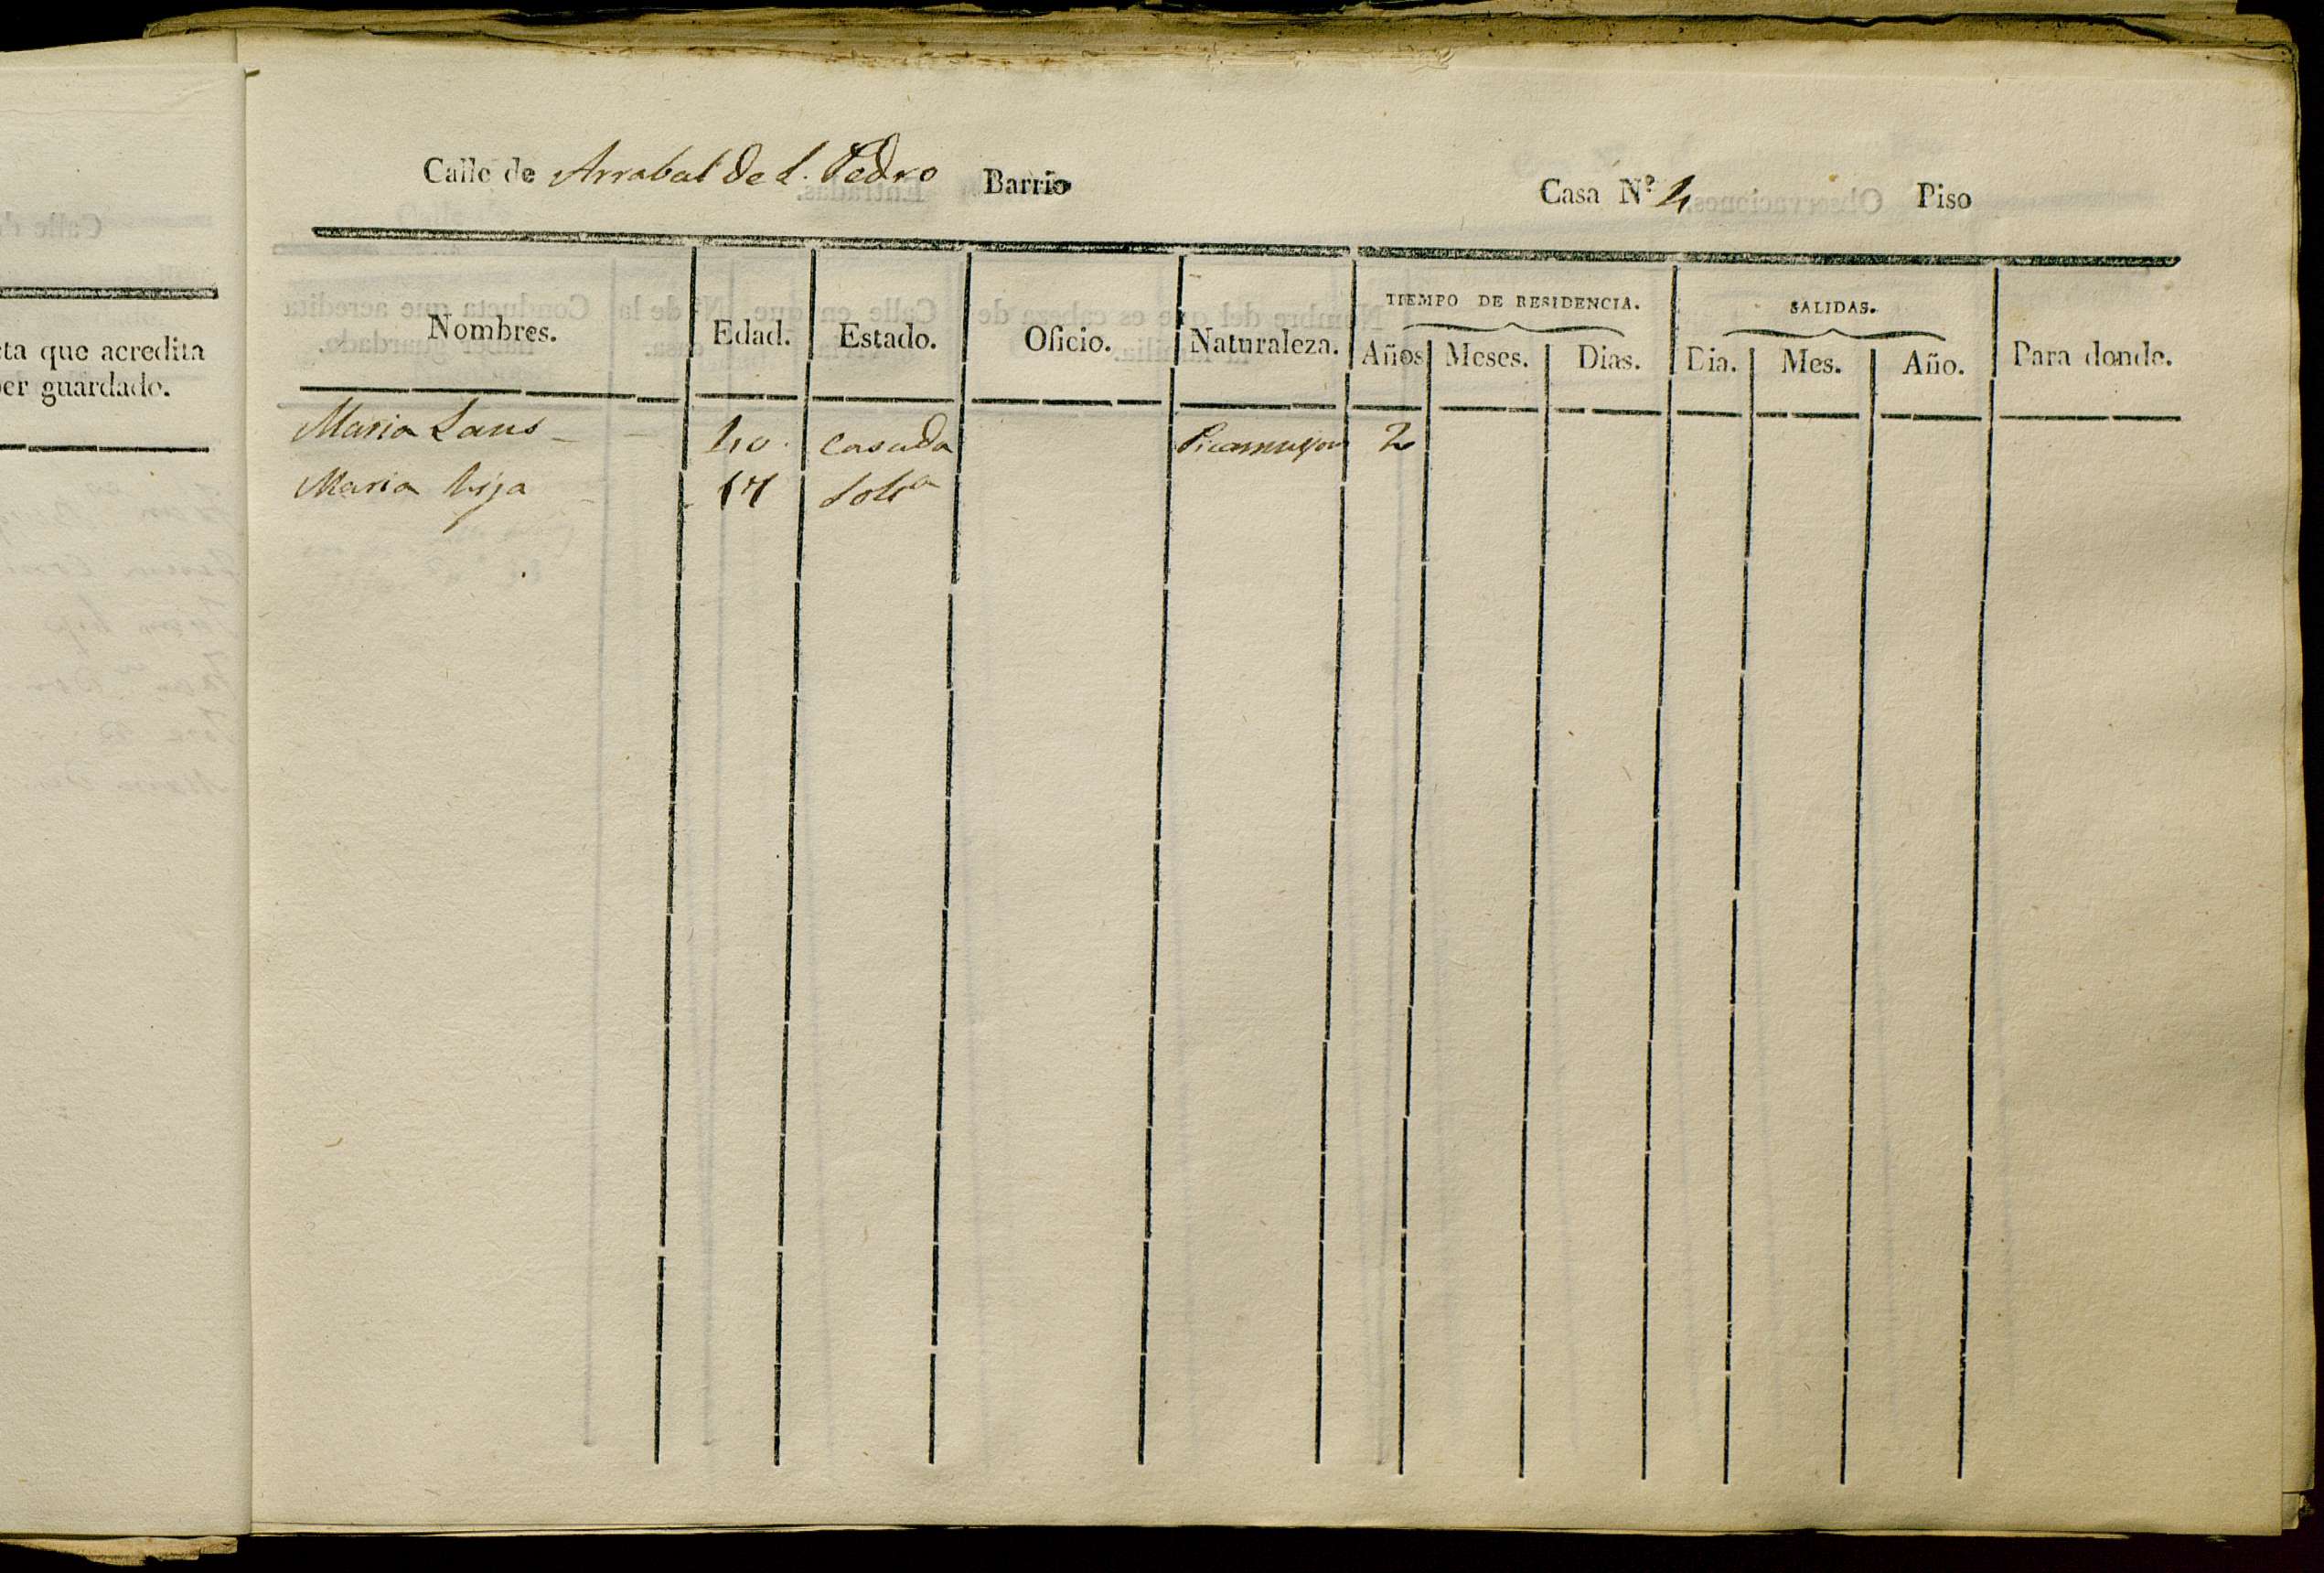 Calle de Arrabal de S. Pedro Barrio Casa N.º 4 Piso
TIEMPO DE RESIDENCIA. SALIDAS.
Nombres. Edad. Estado. Oficio. Naturaleza. Años Meses. Dias. Dia. Mes. Año. Para donde.
Maria Sans 40. Casada 2
Maria hija 17 Solt.a
ta que acredita
er guardado.